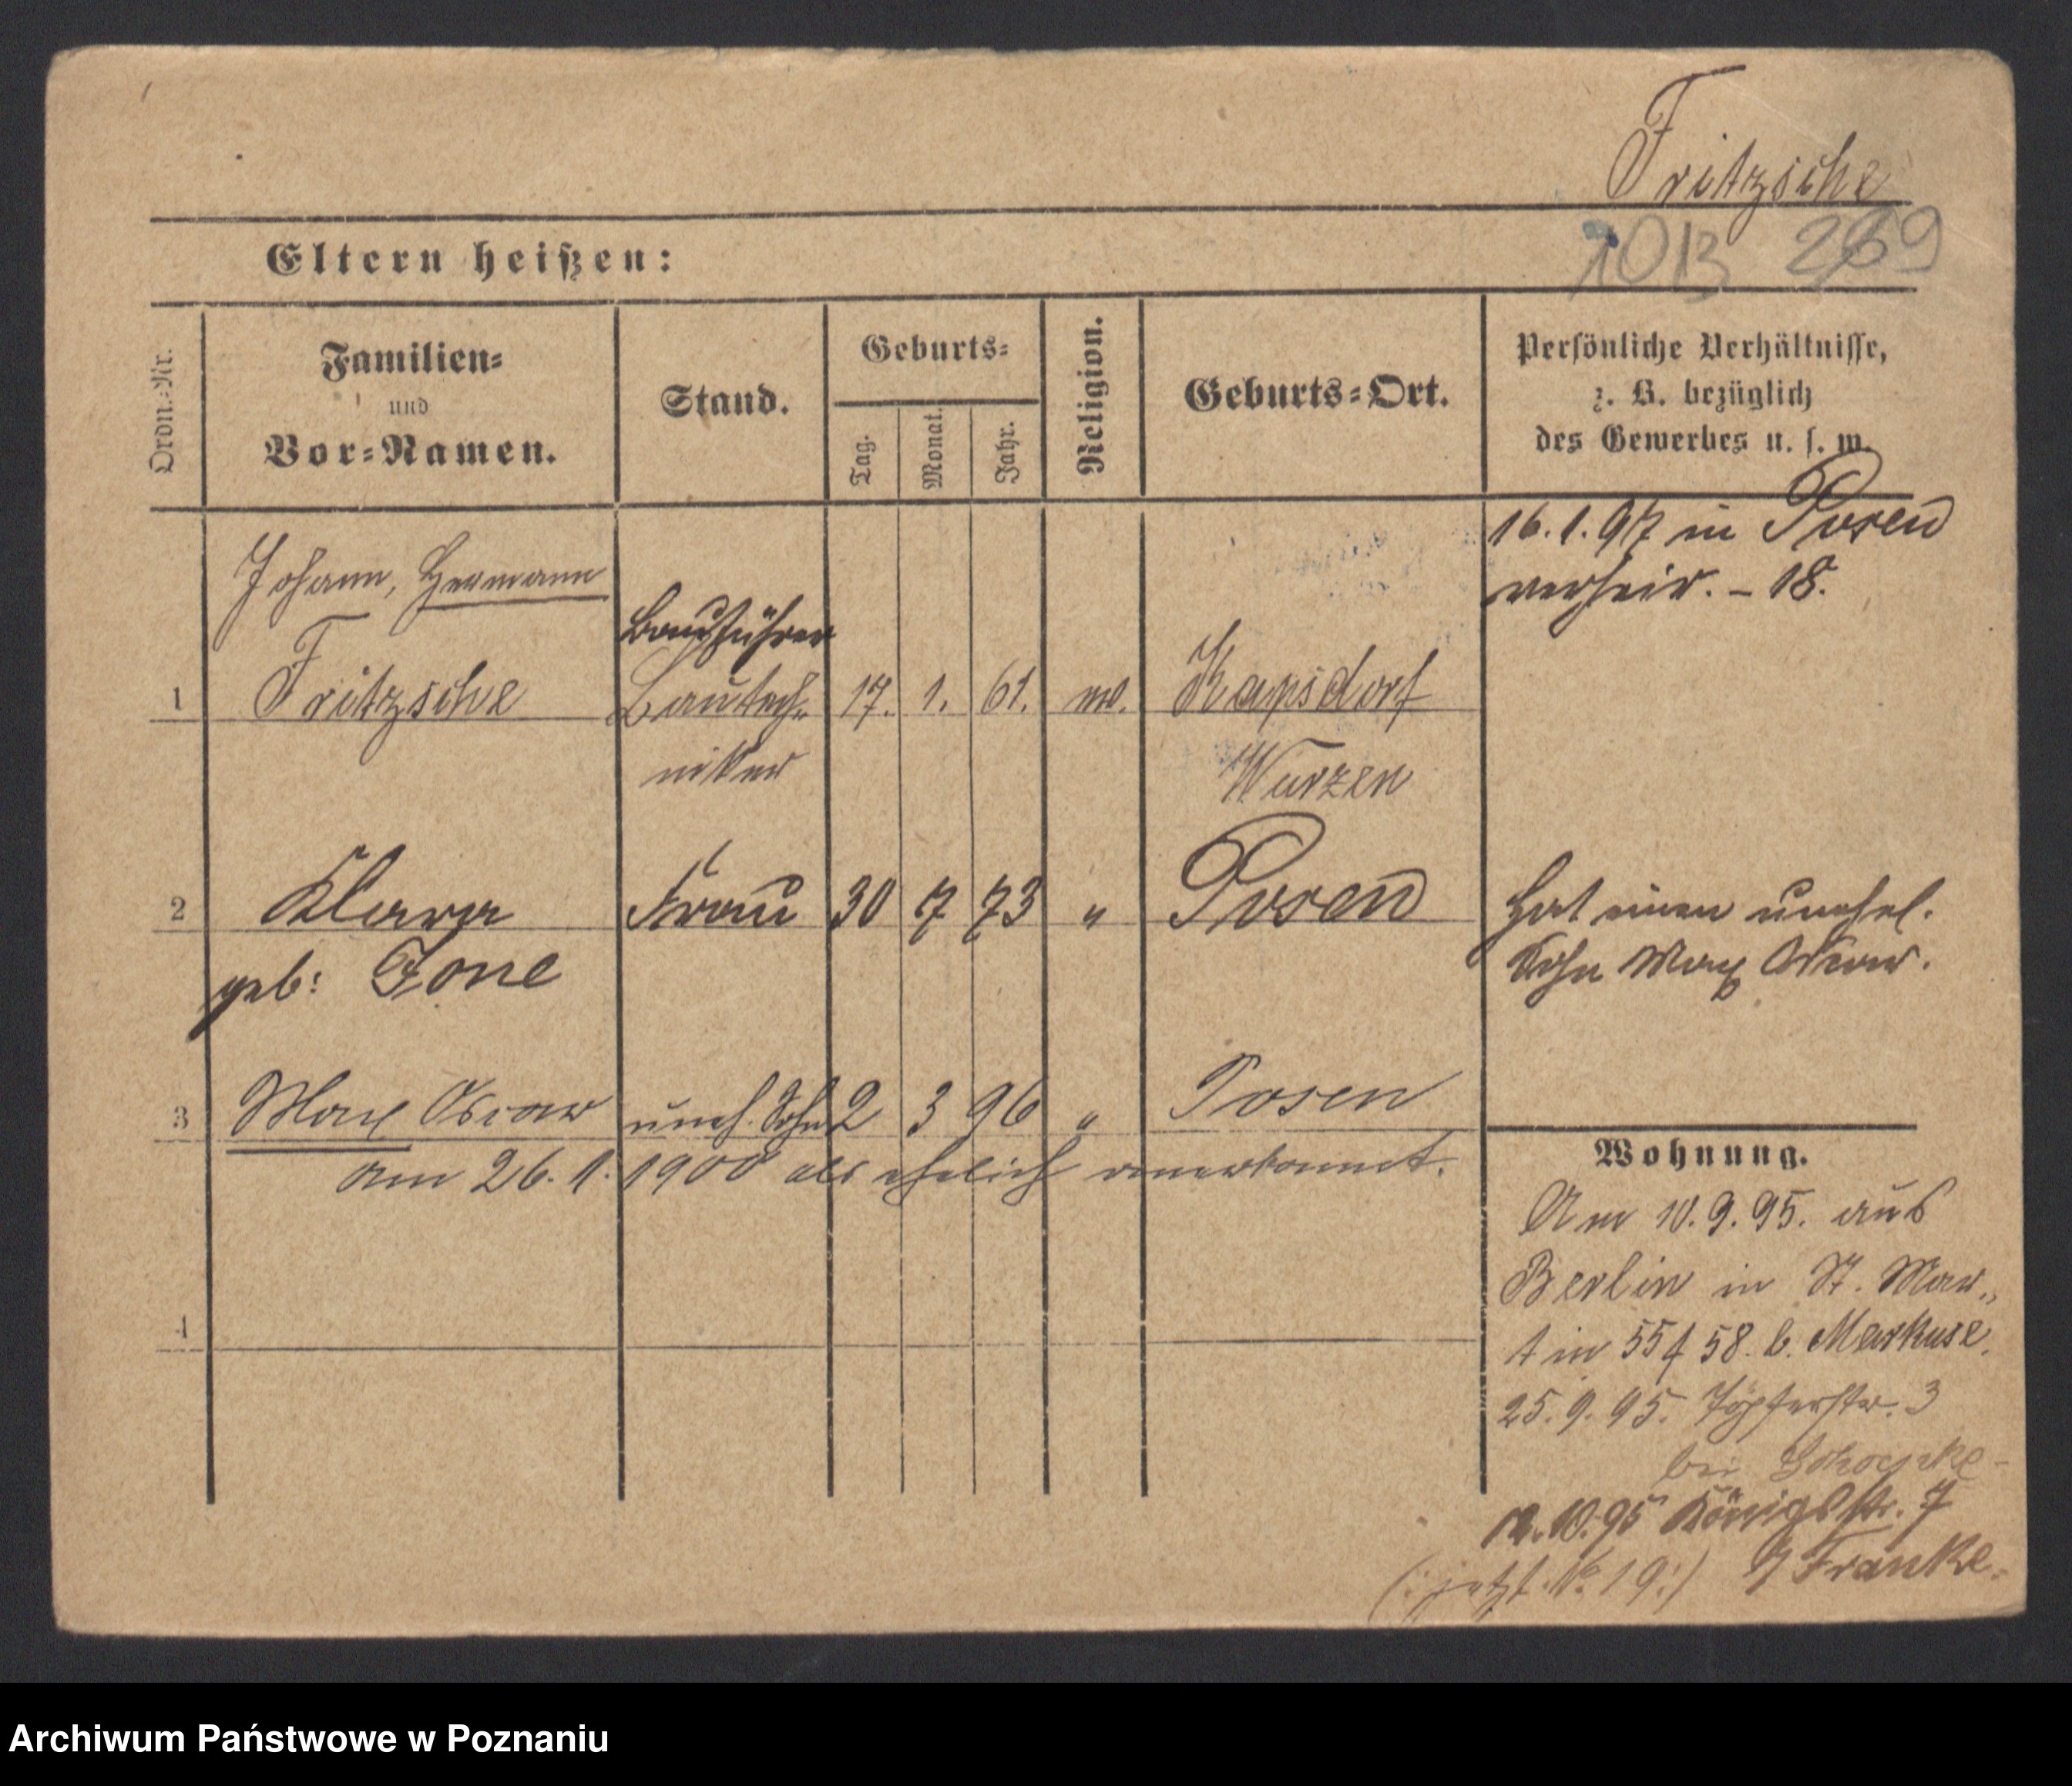 Fritzsche
1013 269
Eltern heißen:
Ordn.-Nr.
Familien-
und
Vor-Namen.
Stand.
Geburts-
Tag.
Monat.
Jahr.
Religion.
Geburts-Ort.
Persönliche Verhältnisse,
z. B. bezüglich
des Gewerbes u. s. w.
16.1.97 in Posen
verheir. - 18.
Johann, Hermann
Bauführer
1 Fritzsche Bautech- 17. 1. 61. Kapsdorf
niker Wurzen
2 Klara Frau 30 7 73 " Posen
geb: Jone
Hat einen unehel.
Sohn Max Oskar.
3 Max Oscar uneh. Sohn 2 3 96 " Posen
am 26.1.1900 als ehelich anerkannt.
4
Wohnung.
Am 10.9.95. aus
Berlin in St. Mar-
tin 55/58. b. Markuse.
25.9.95. Töpferstr. 3
bei
10.95 Königsstr. 7
(: jetzt No 19:) Franke.
Archiwum Państwowe w Poznaniu